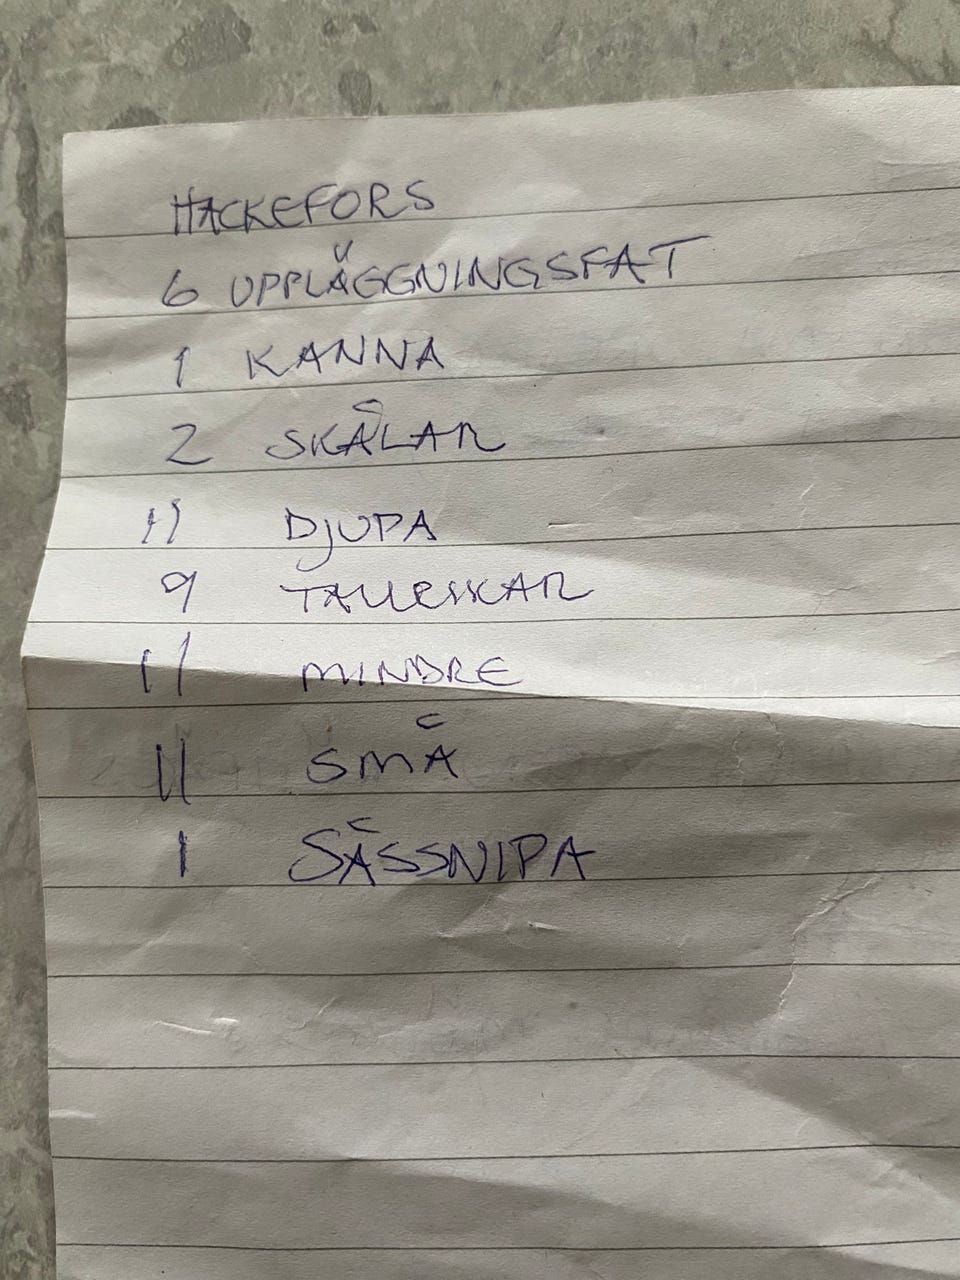 HACKEFORS
6 UPPLÄGGNINGSFAT
1 KANNA
2 SKÅLAR
11 DJUPA
9 TALLRIKAR
11 MINDRE
11 SMÅ
1 SÅSSNIPA